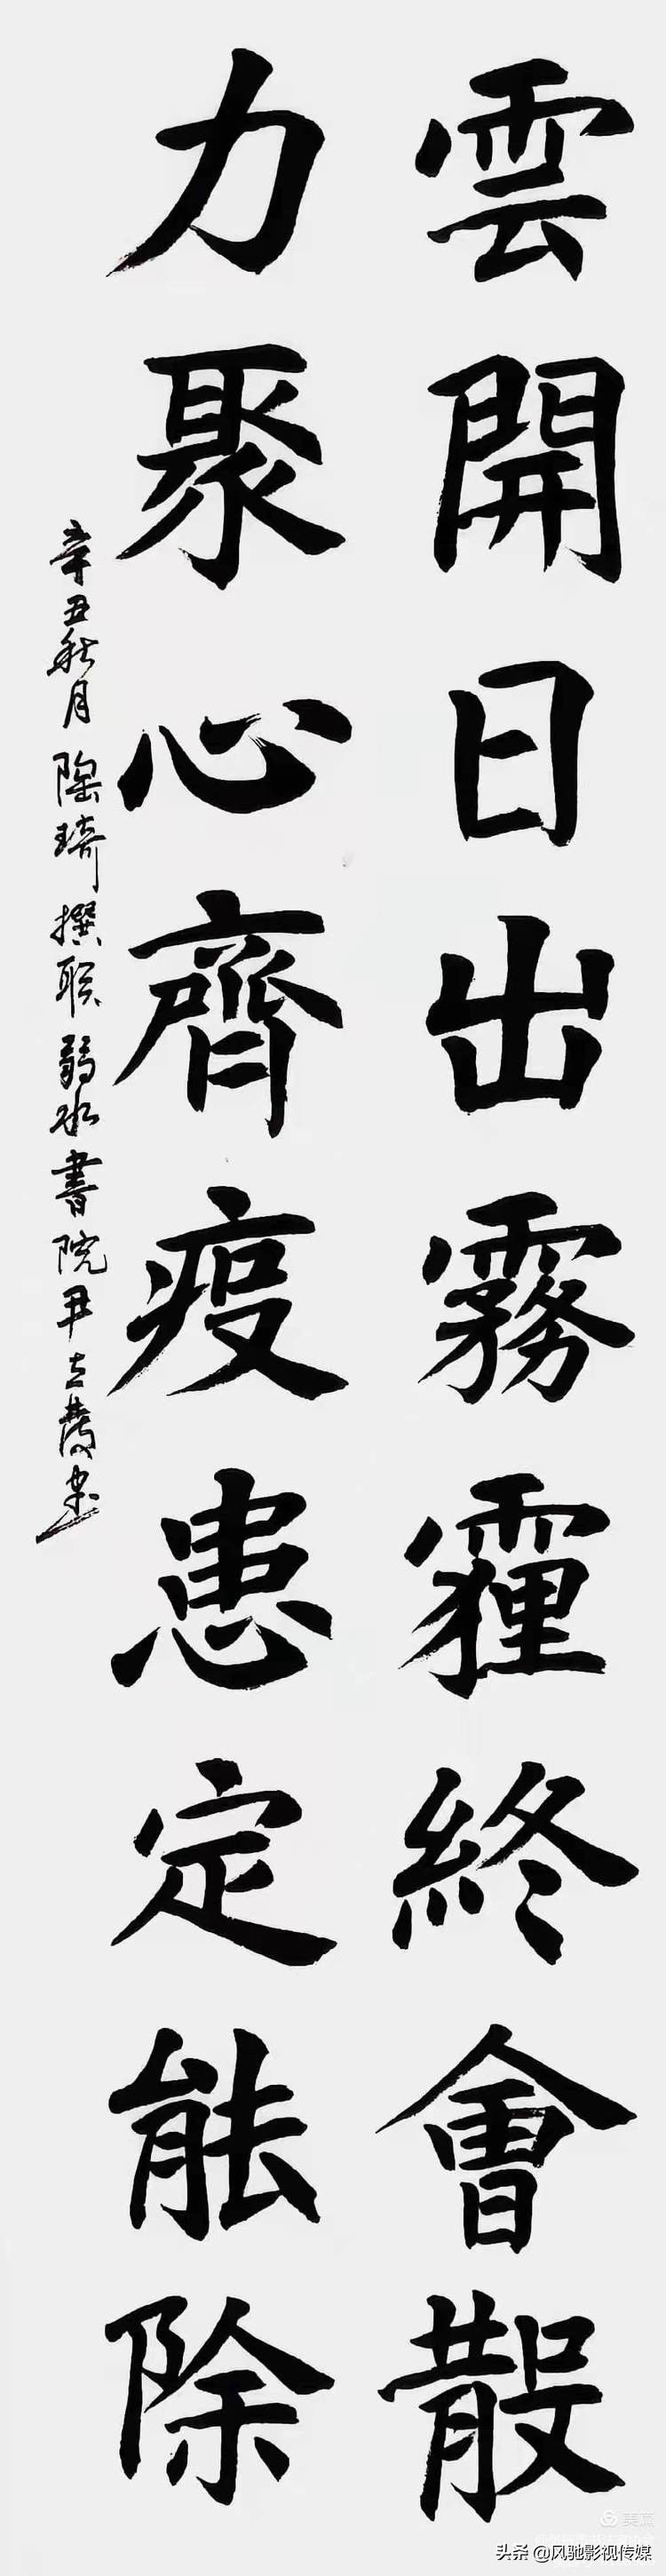 雲開日出霧霾終會散
力聚心齊疫患定能除
辛丑秋月陶琦撰联弱水書院尹立慶书
美篇
头条 @风驰影视传媒